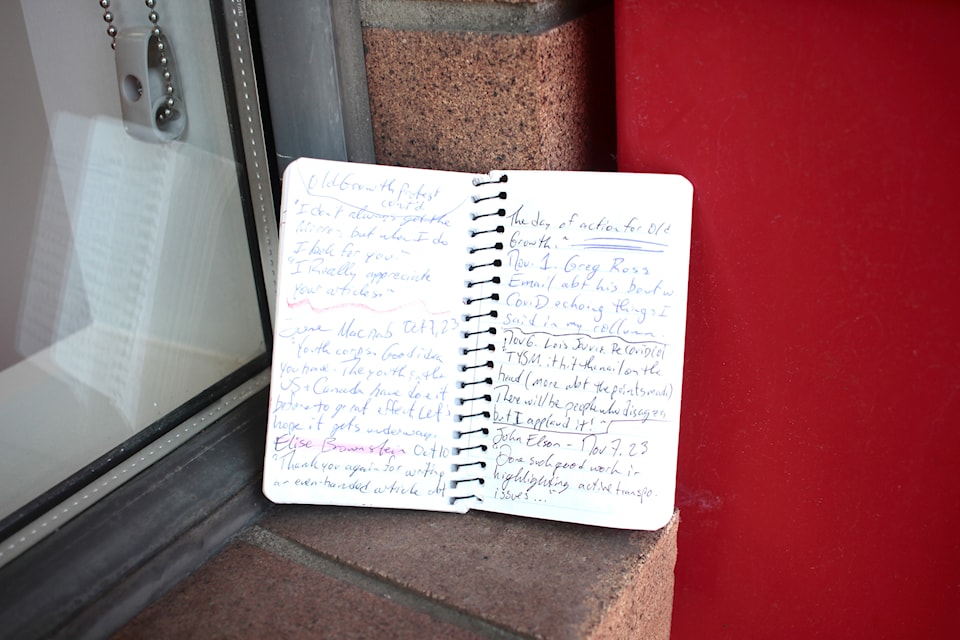 Old Growth Protest
cont'd
"I don't always get the
Mirror, but when I do
I look for you."
"I Really appreciate
your articles."
MacNab Oct 7, 23
"Youth corps. Good idea
you have. The youth in the
US & Canada have done it
before to great effect Let's
hope it gets underway.
Elise Brownstein Oct 10
"Thank you again for writing
an even-handed article abt
The day of action for Old
Growth."
Nov. 1. Greg Ross
Email abt his bout w
CoviD echoing things I
said in my column.
Nov 6. Lois Re covid col
TYSM. it hit the nail on the
head (more abt the points made)
There will be people who disagree
but I applaud it!"
John Elson - Nov 7, 23
"Done such good work in
highlighting active transpo.
issues..."